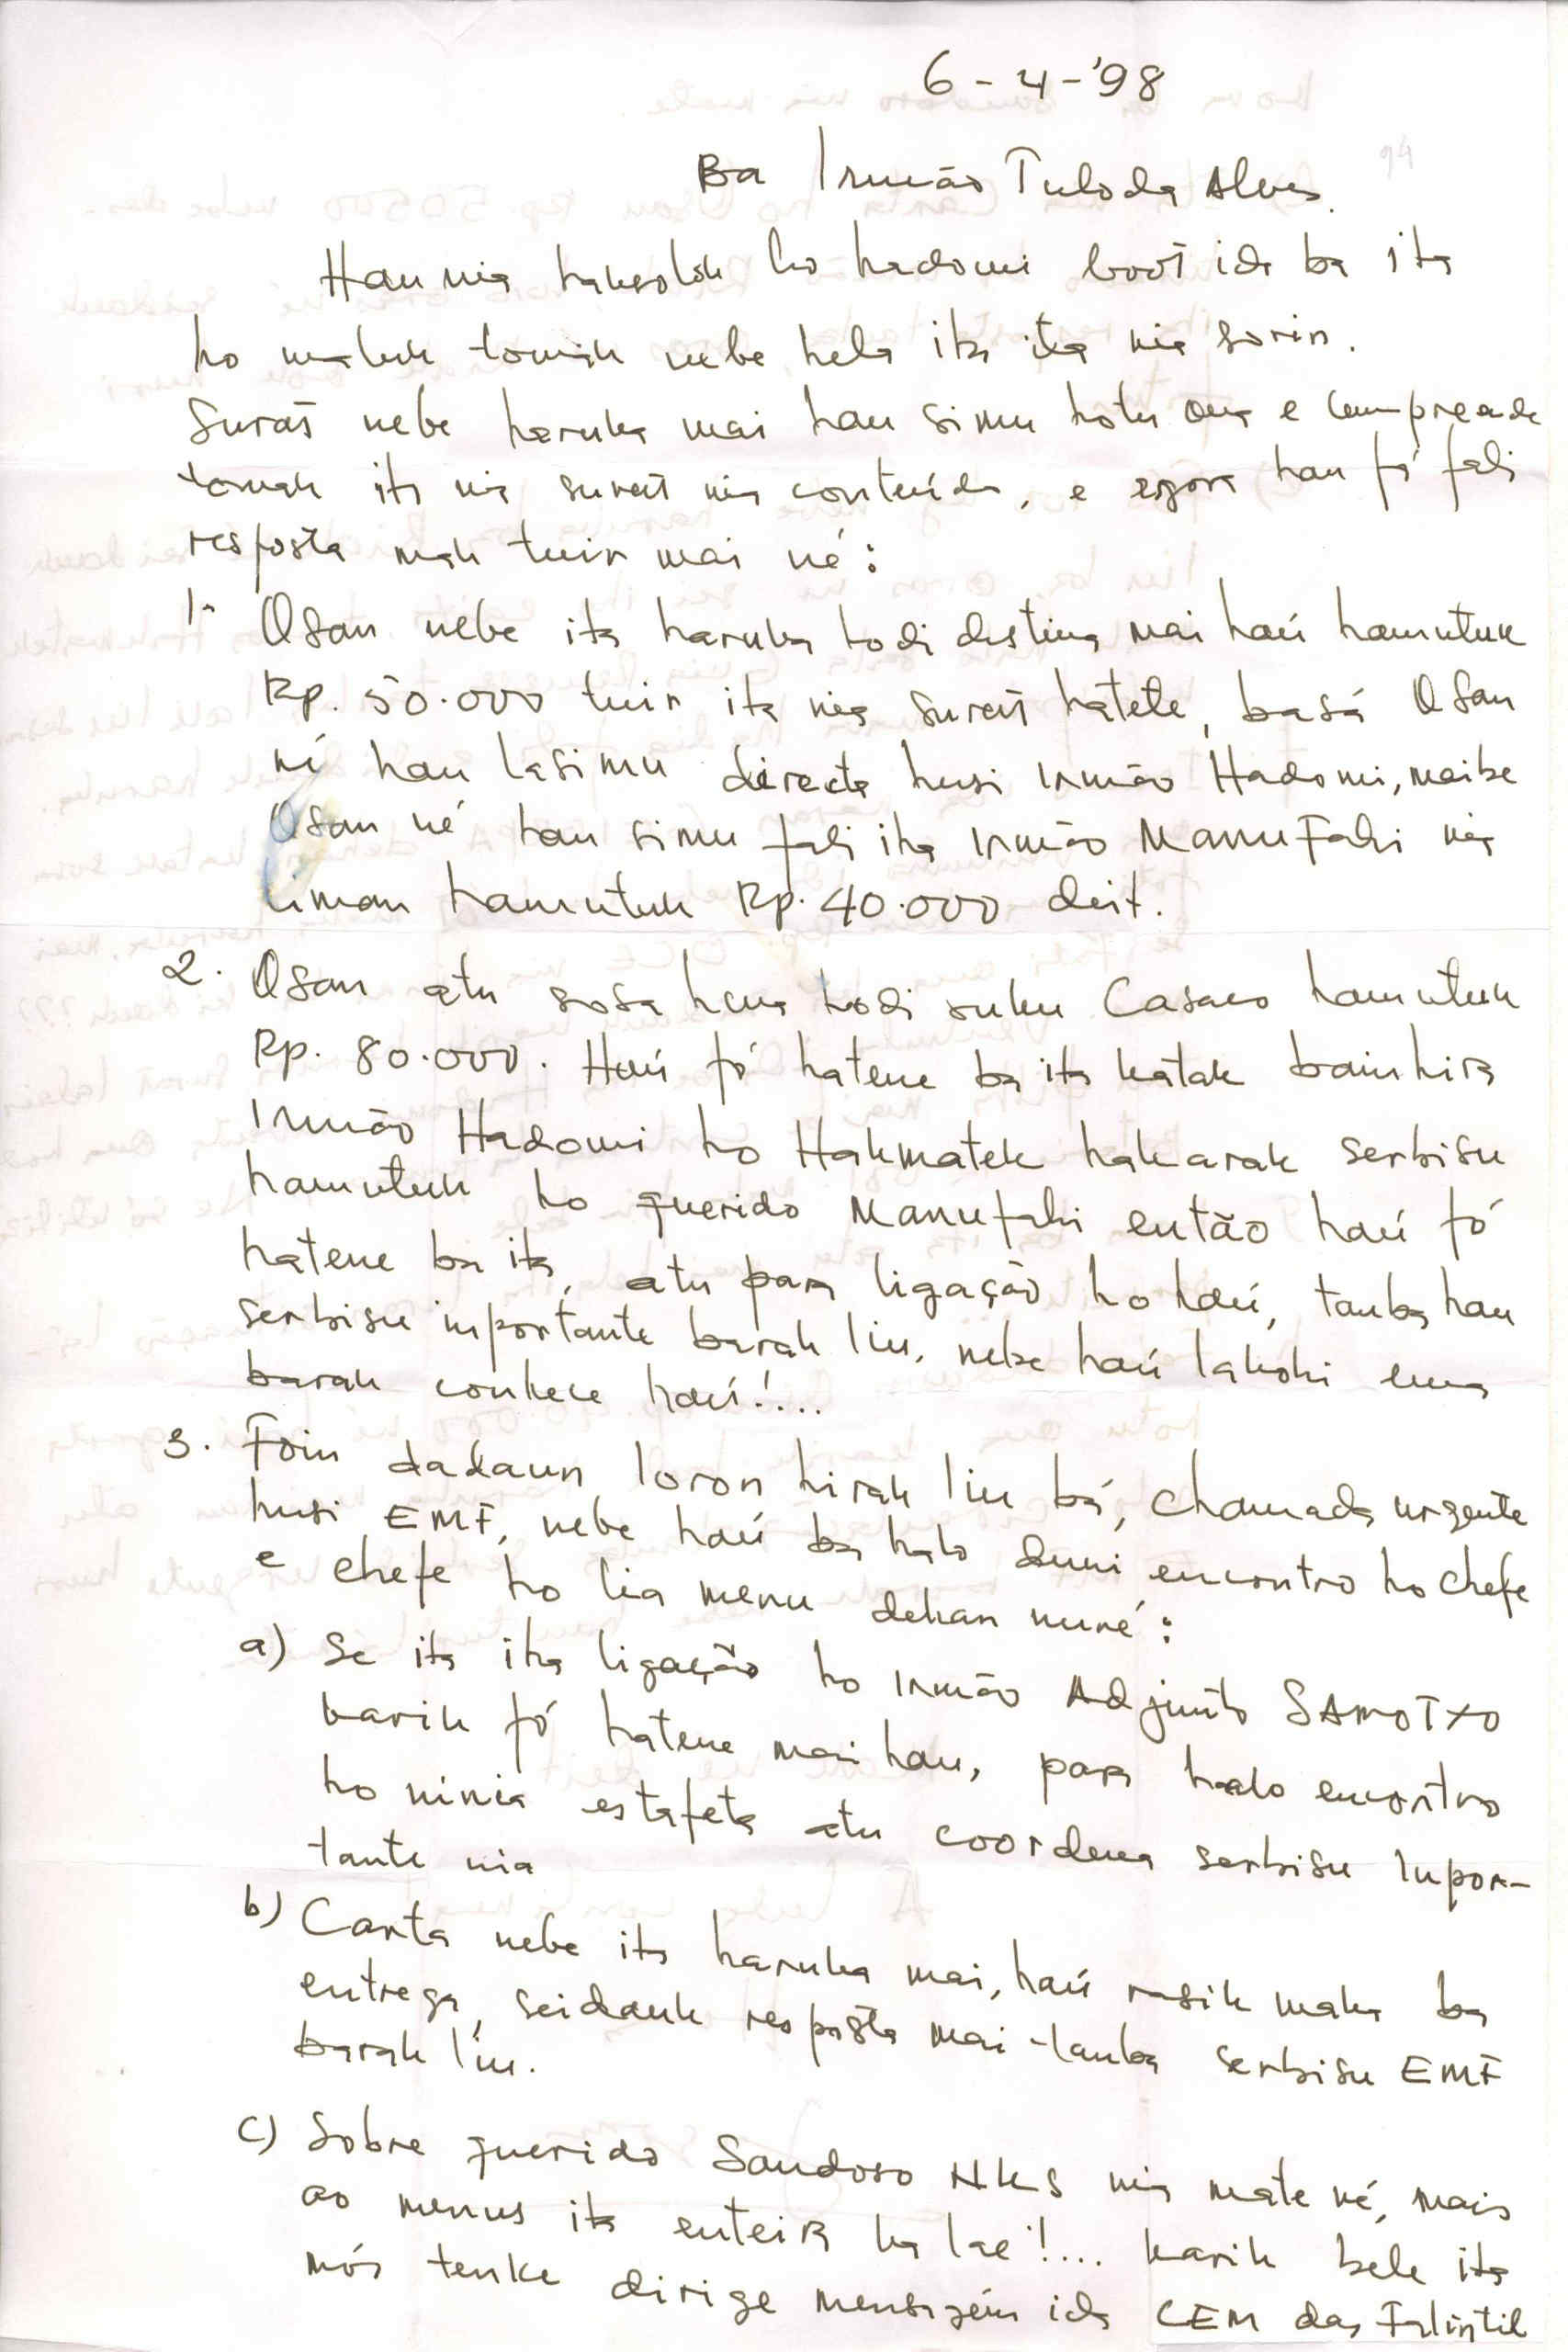 6 - 4 - '98
94
Ba Irmão Tuloda Alves.
Hau nia haksolok ho hadomi boot ida ba ita
ho maluk tomak nebe hela iha ita nia sorin.
Surat nebe haruka mai hau simu hotu ona e compreende
tomak ita nia surat nia conteúdo, e agora hau fó fali
resposta mak tuir mai né:
1. Osan nebe ita haruka hodi destina mai haú hamutuk
Rp. 50.000 tuir ita nia surat hatete, basá Osan
né hau lasimu directa husi irmão Hadomi, maibe
Osan né hau simu fali iha irmão Manufahi nia
liman hamutuk Rp. 40.000 deit.
2. Osan atu sosa hena hodi suku Casaco hamutuk
Rp. 80.000. Haú fó hatene ba ita katak bainhira
Irmão Hadomi ho Hakmatek hakarak serbisu
hamutuk ho querido Manufahi então haú fó
hatene ba ita, atu para ligação ho haú, tauba hau
serbisu inportante barak liu, nebe haú lakohi ema
barak conhece haú!...
3. Foin dadaun, loron hirak liu bá, chamada urgente
husi EMF, nebe haú ba halo duni encontro ho chefe
e chefe ho lia menu dehan nuné:
a) Se ita iha ligação ho irmão Adjunto SAMOTXO
karik fó hatene mai hau, para halo encontro
ho ninia estafeta atu coordena serbisu Inpor-
tante nia
b) Carta nebe ita haruka mai, haú rasik maka ba
entrega, seidauk resposta mai tauba serbisu EMF
barak liu.
c) Sobre querido Saudoso NKS nia mate né, mais
ao menus ita enteira ka lae!... karik bele ita
mós tenke dirige mensagém ida CEM das Falintil